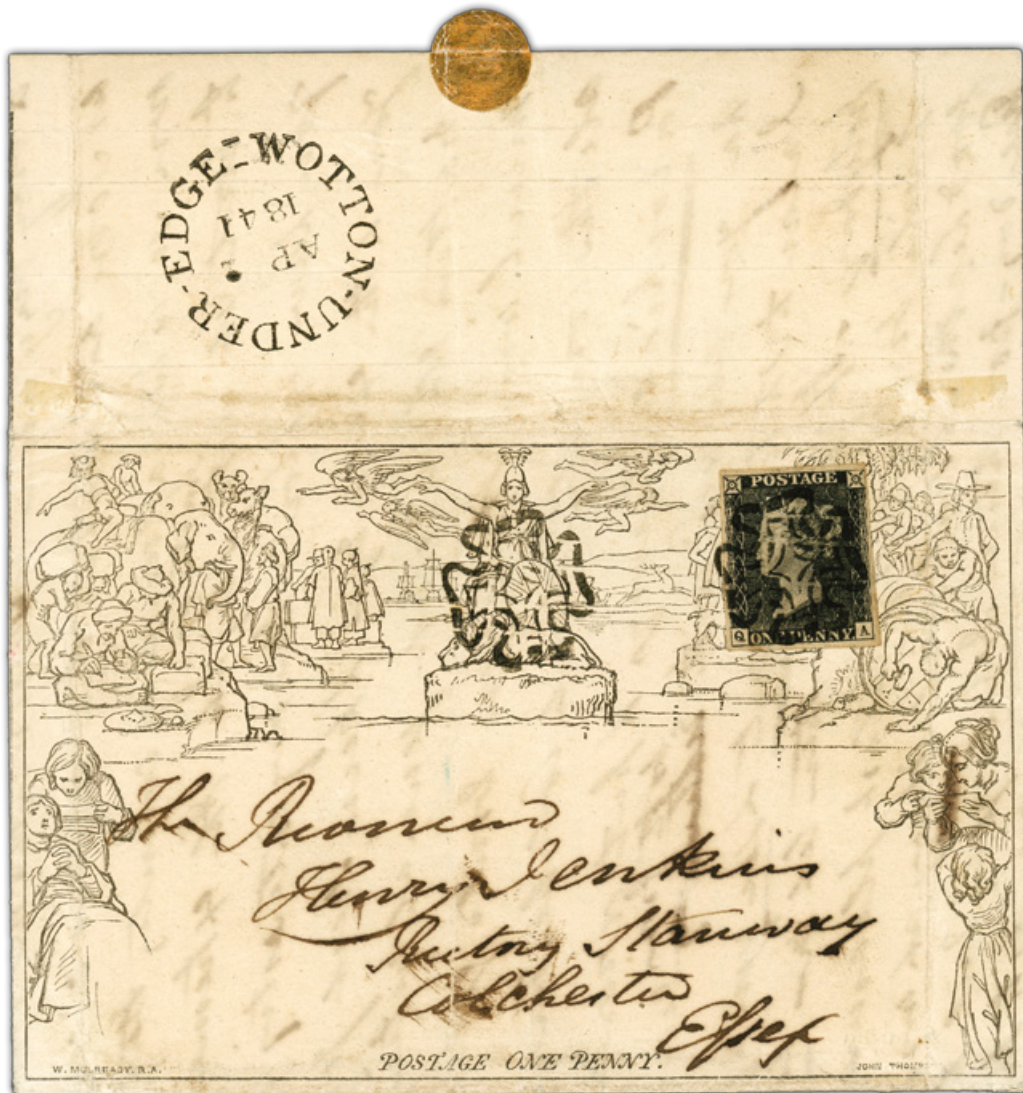 WOTTON-UNDER-EDGE
AP
1841
POSTAGE
Q ONE PENNY A
The Reverend
Henry Jenkins
Rectory Stanway
Colchester
Essex
POSTAGE ONE PENNY.
W. MULREADY. R.A.
JOHN THOMPS